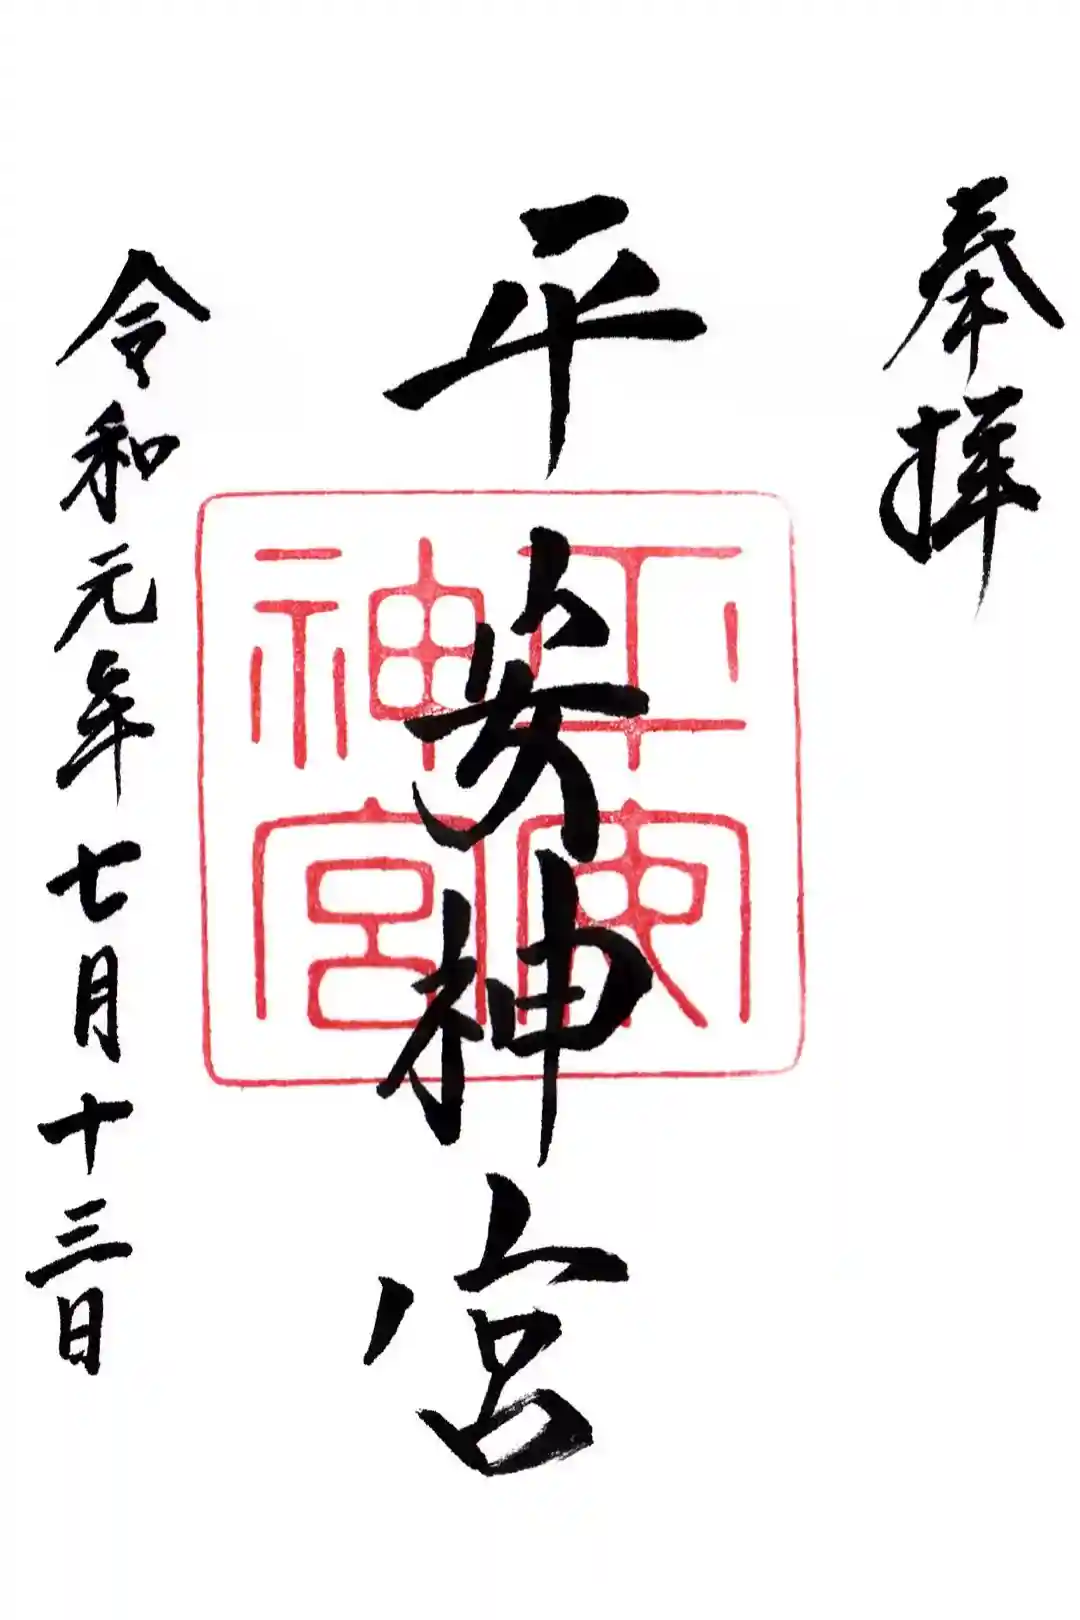 奉拝
平安神宮
平安
神宮
令和元年七月十三日